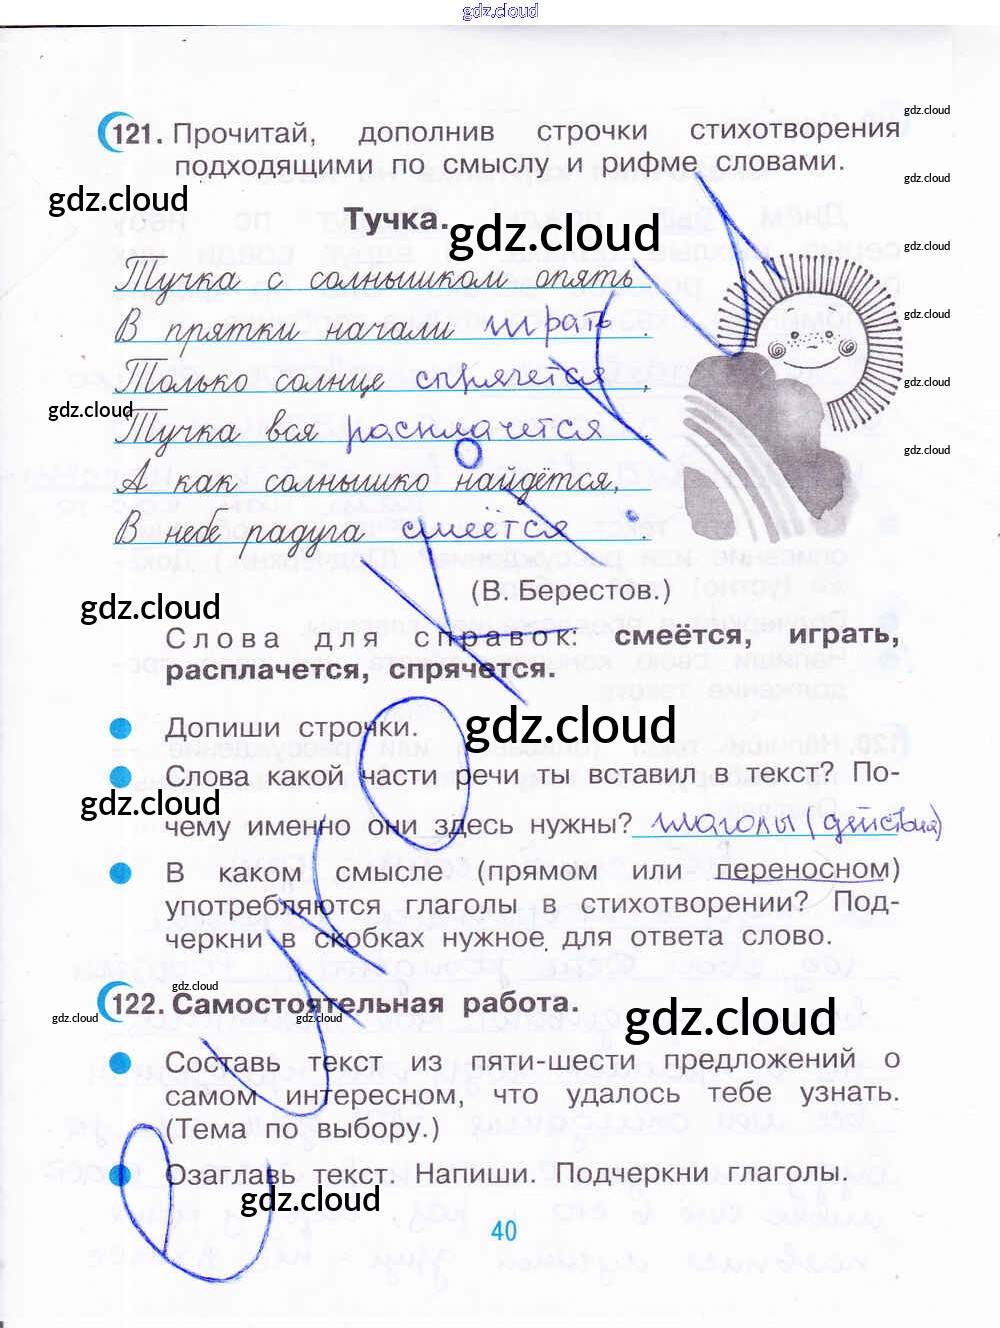 gdz.cloud
gdz.cloud
121. Прочитай, дополнив строчки стихотворения
подходящими по смыслу и рифме словами.
gdz.cloud
gdz.cloud
Тучка.
gdz.cloud
gdz.cloud
Тучка с солнышком опять
В прятки начали играть
gdz.cloud
Только солнце спрячется.
gdz.cloud
gdz.cloud
Тучка вся расплачется.
gdz.cloud
А как солнышко найдётся,
В небе радуга смеётся.
(В. Берестов.)
gdz.cloud
Слова для справок: смеётся, играть,
расплачется, спрячется.
Допиши строчки.
gdz.cloud
Слова какой части речи ты вставил в текст? По-
gdz.cloud
чему именно они здесь нужны? глаголы (действия)
В каком смысле (прямом или переносном)
употребляются глаголы в стихотворении? Под-
черкни в скобках нужное для ответа слово.
gdz.cloud
122. Самостоятельная работа.
gdz.cloud
gdz.cloud
gdz.cloud
Составь текст из пяти-шести предложений о
самом интересном, что удалось тебе узнать.
(Тема по выбору.)
Озаглавь текст. Напиши. Подчеркни глаголы.
gdz.cloud
40